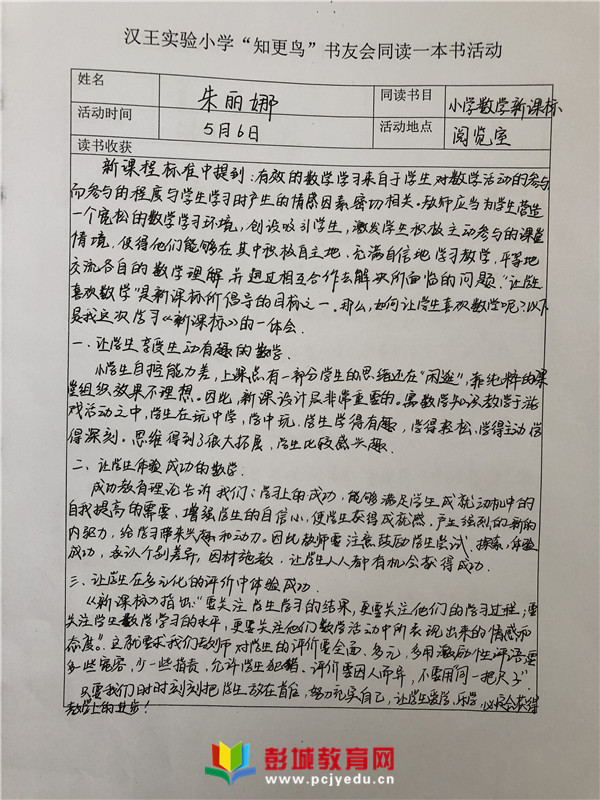 汉王实验小学“知更鸟”书友会同读一本书活动
姓名 朱丽娜 同读书目 小学数学新课标
活动时间 5月6日 活动地点 阅览室
读书收获
新课程标准中提到:有效的数学学习来自于学生对数学活动的参与
而参与的程度与学生学习时产生的情感因素密切相关。教师应当为学生营造
一个宽松的数学学习环境,创设吸引学生,激发学生积极主动参与的课堂
情境,使得他们能够在其中积极自主地、充满自信地学习数学,平等地
交流各自的数学理解并通过相互合作去解决所面临的问题.“让学生
喜欢数学”是新课标所倡导的目标之一。那么,如何让学生喜欢数学呢?以下
是我这次学习《新课标》的一体会.
一.让学生享受生动有趣的数学.
小学生自控能力差,上课总有一部分学生的思绪还在“闲逛”,靠纯粹的课
堂组织效果不理想。因此,新课设计是非常重要的。寓数学知识教学于游
戏活动之中,学生在玩中学,学中玩.学生学得有趣,学得轻松.学得主动学
得深刻.思维得到了很大拓展,学生比较感兴趣.
二.让学生体验成功的数学.
成功教育理论告诉我们:学习上的成功,能够满足学生成就动机中的
自我提高的需要、增强学生的自信心,使学生获得成就感,产生强烈的新的
内驱力,给学习带来兴趣和动力。因此教师要注意鼓励学生尝试、探索、体验
成功,承认个别差异,因材施教,让学生人人都有机会获得成功.
三.让学生在多元化的评价中体验成功.
《新课标》指出:“要关注学生学习的结果,更要关注他们的学习过程;要
关注学生数学学习的水平,更要关注他们数学活动中所表现出来的情感和
态度”.这就要求我们教师对学生的评价要全面、多元,多用激励性评语要
多些宽容,少一些指责,允许学生犯错.评价要因人而异,不要用“同一把尺子”.
只要我们时时刻刻把学生放在首位,努力充实自己,让学生爱学,乐学,必定会获得
教学上的进步!
彭城教育网
www.pcjyedu.cn